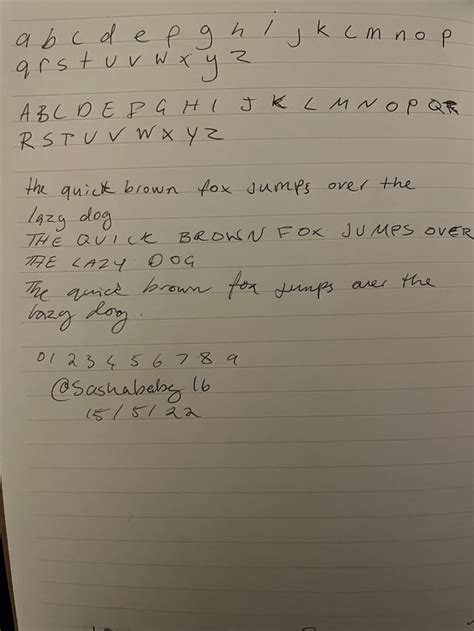 a b c d e f g h i j k l m n o p
q r s t u v w x y z
A B C D E F G H I J K L M N O P Q R
R S T U V W X Y Z
the quick brown fox jumps over the
lazy dog
THE QUICK BROWN FOX JUMPS OVER
THE LAZY DOG
The quick brown fox jumps over the
lazy dog.
0 1 2 3 4 5 6 7 8 9
@Sashababy16
15/5/22